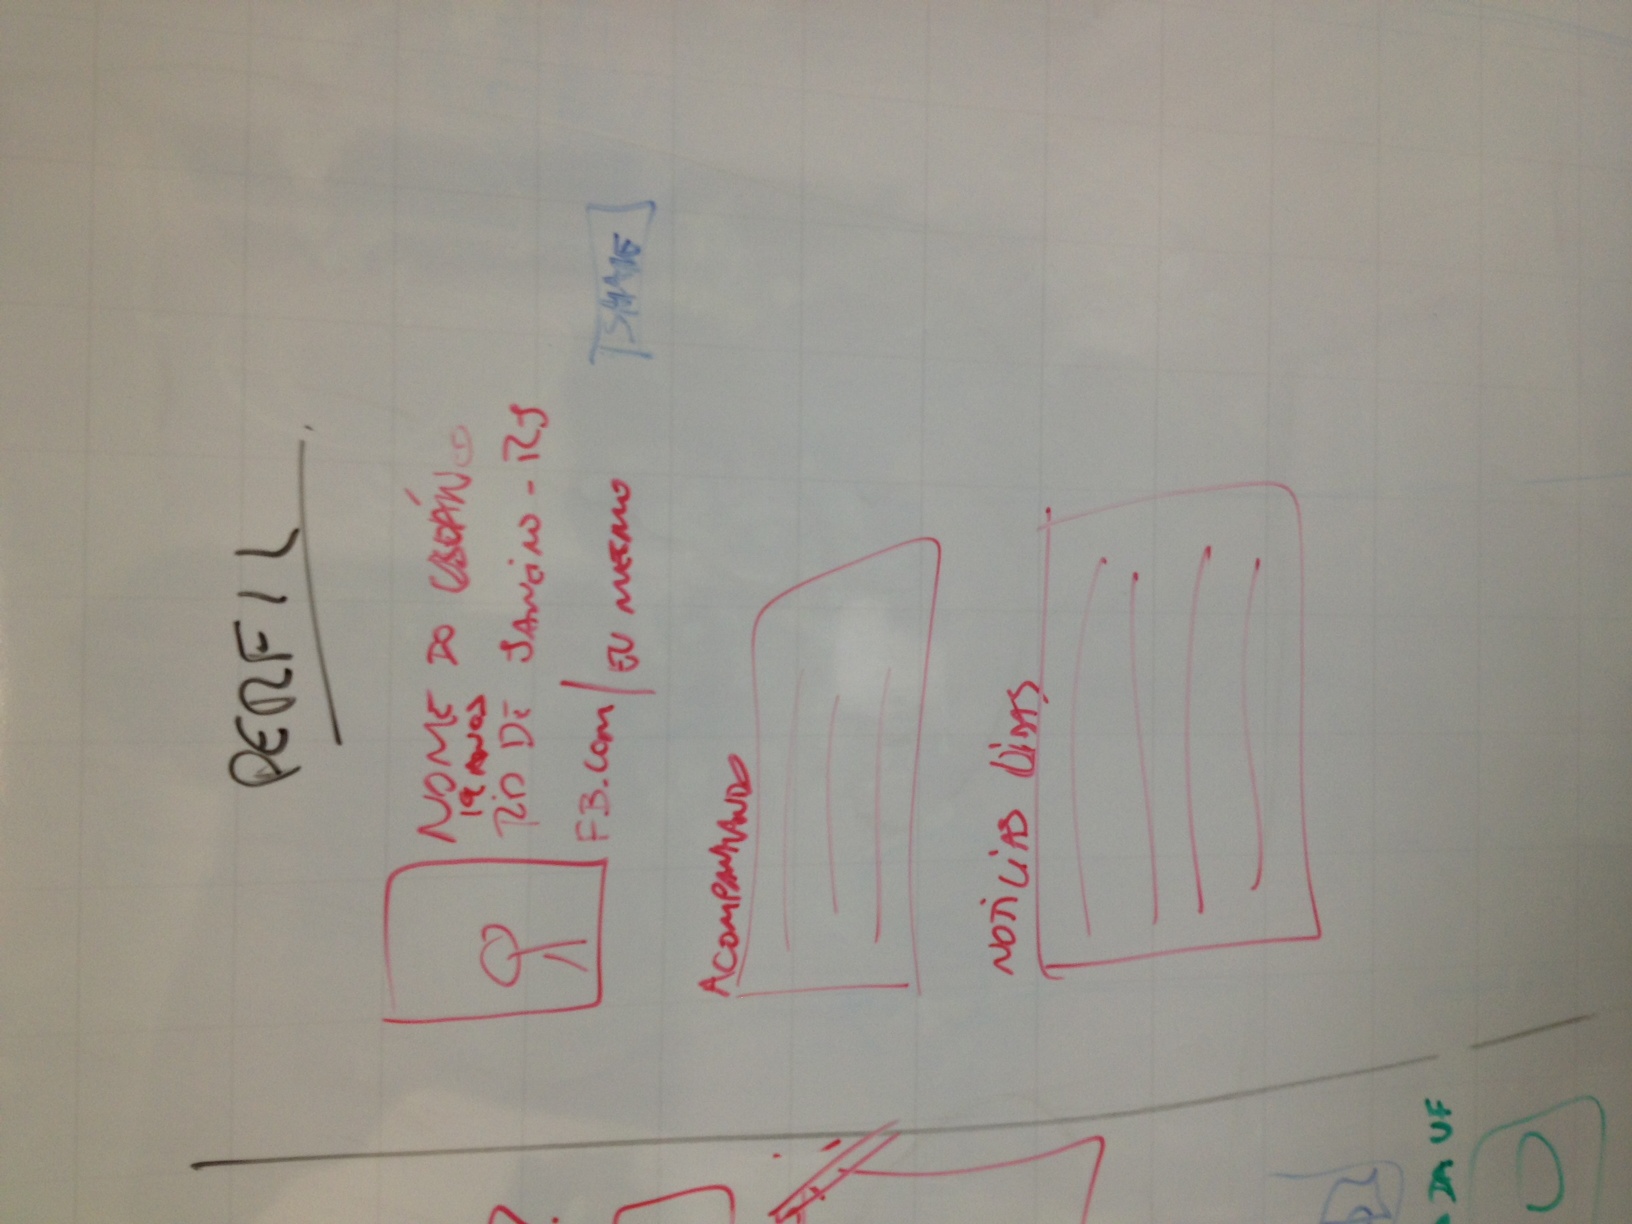 PERFIL
NOME DO USUÁRIO
19 ANOS
RIO DE JANEIRO - RJ
FB.COM/EU MESMO
SHARE
ACOMPANHANDO
NOTÍCIAS LIDAS
DA UF